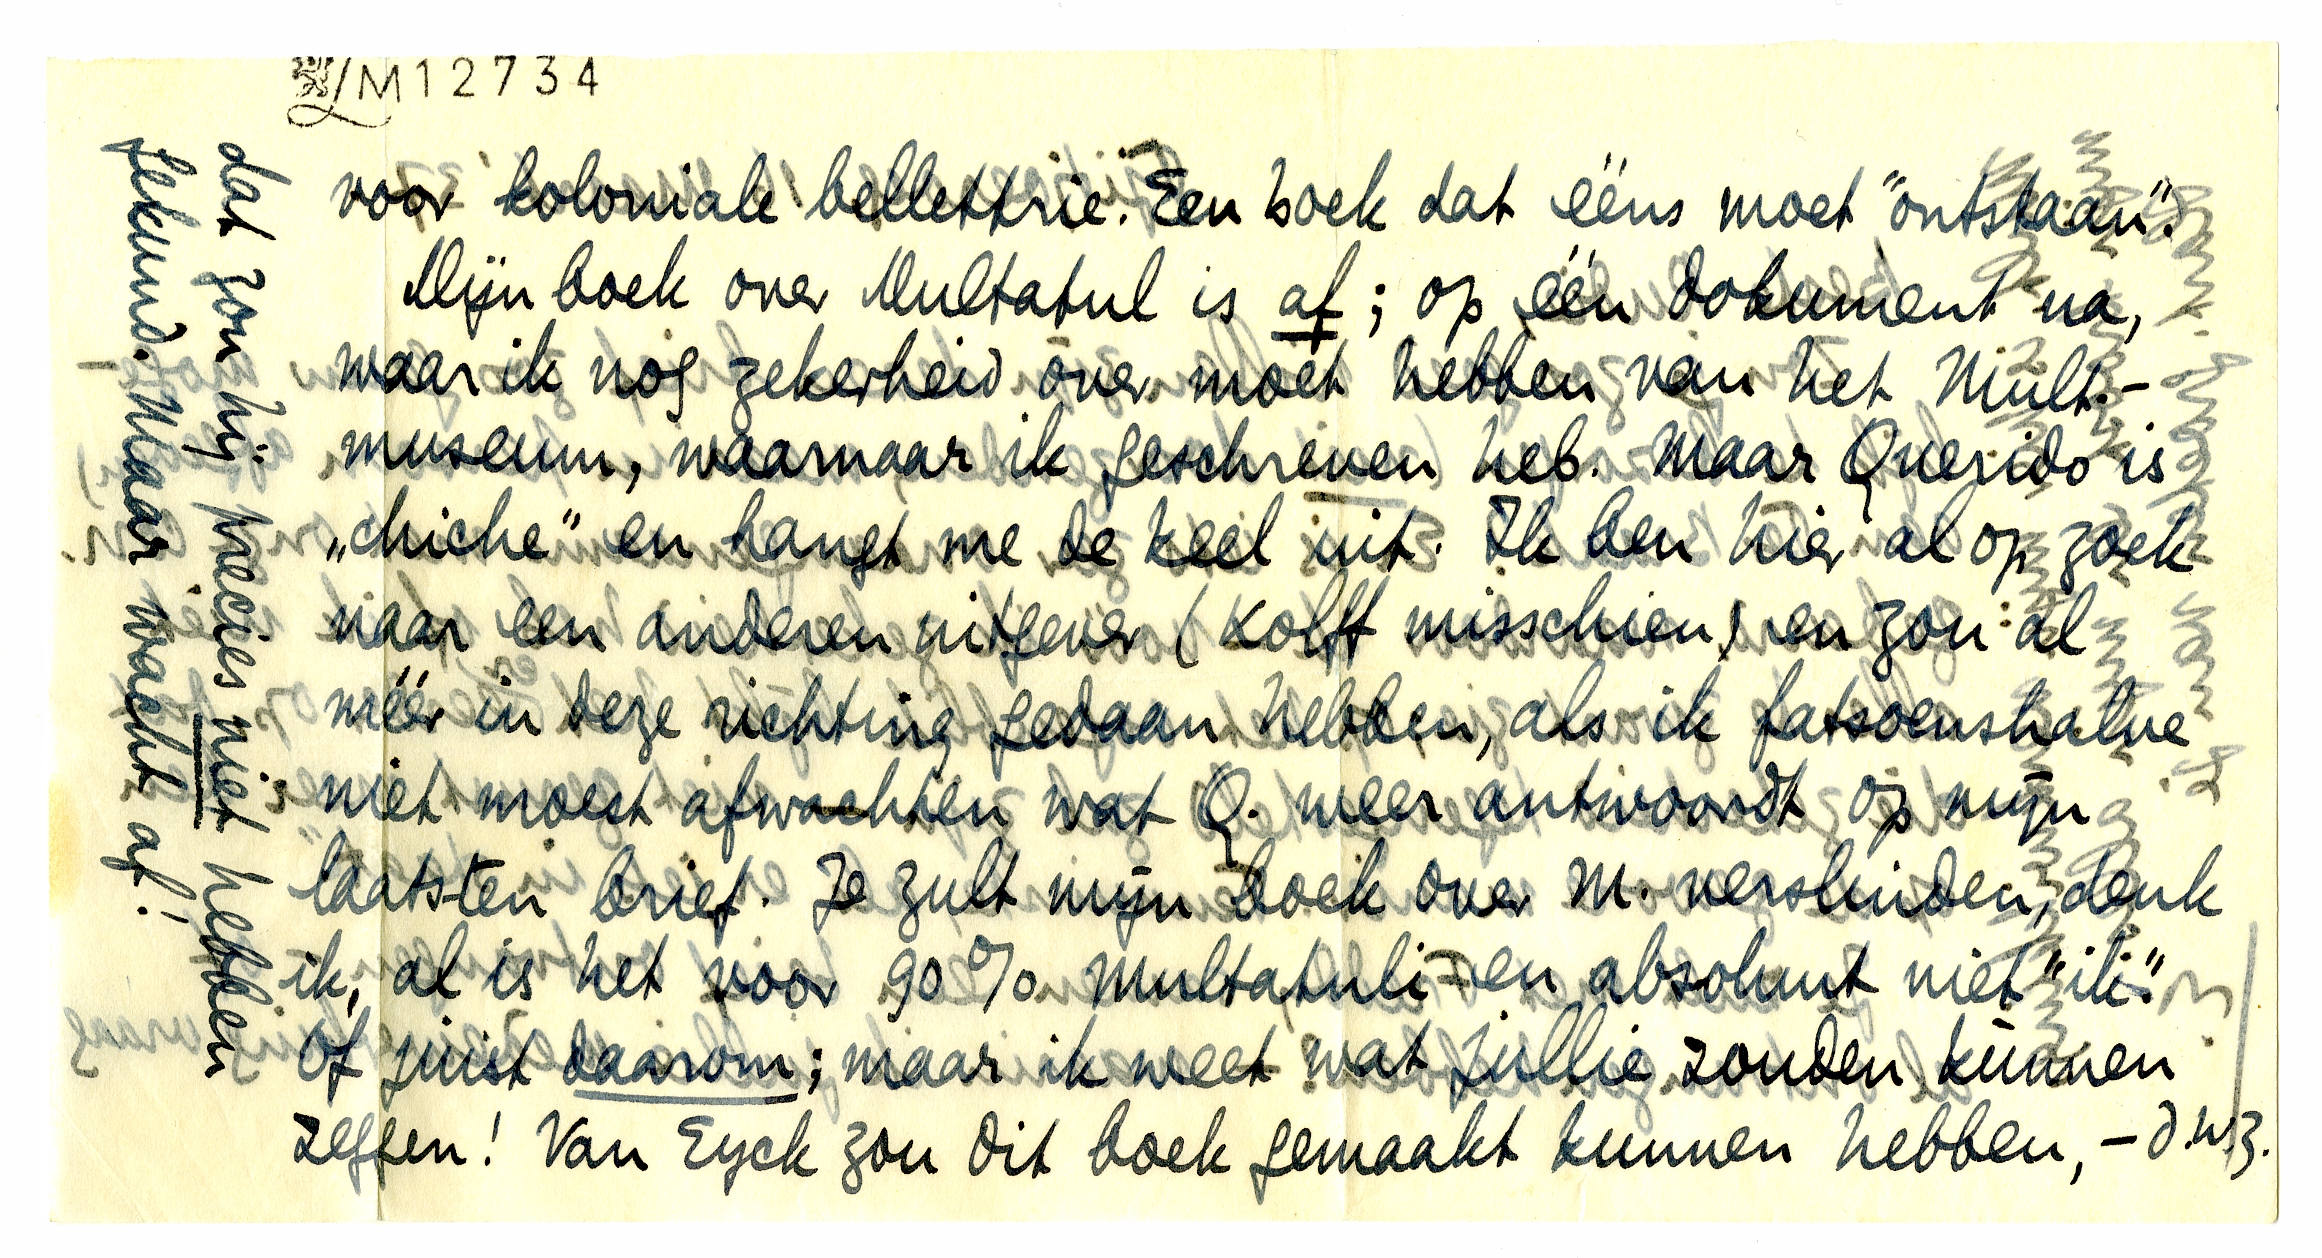 M12734
voor koloniale bellettrie. Een boek dat ééns moet "ontstaan".
Mijn boek over Multatuli is af; op één dokument na,
waar ik nog zekerheid over moet hebben van het Mult.-
museum, waarnaar ik geschreven heb. Maar Querido is
„chiche" en hangt me de keel uit. Ik ben hier al op zoek
naar een anderen uitgever (Kolff misschien) en zou al
méér in deze richting gedaan hebben, als ik fatsoenshalve
niet moest afwachten wat Q. weer antwoordt op mijn
laatsten brief. Je zult mijn boek over M. verslinden, denk
ik, al is het voor 90% Multatuli en absoluut niet "ik".
Of juist daarom; maar ik weet wat jullie zouden kunnen
zeggen! Van Eyck zou dit boek gemaakt kunnen hebben, – d.w.z.
dat zou hij precies niet hebben
gekund. Maar wacht af!